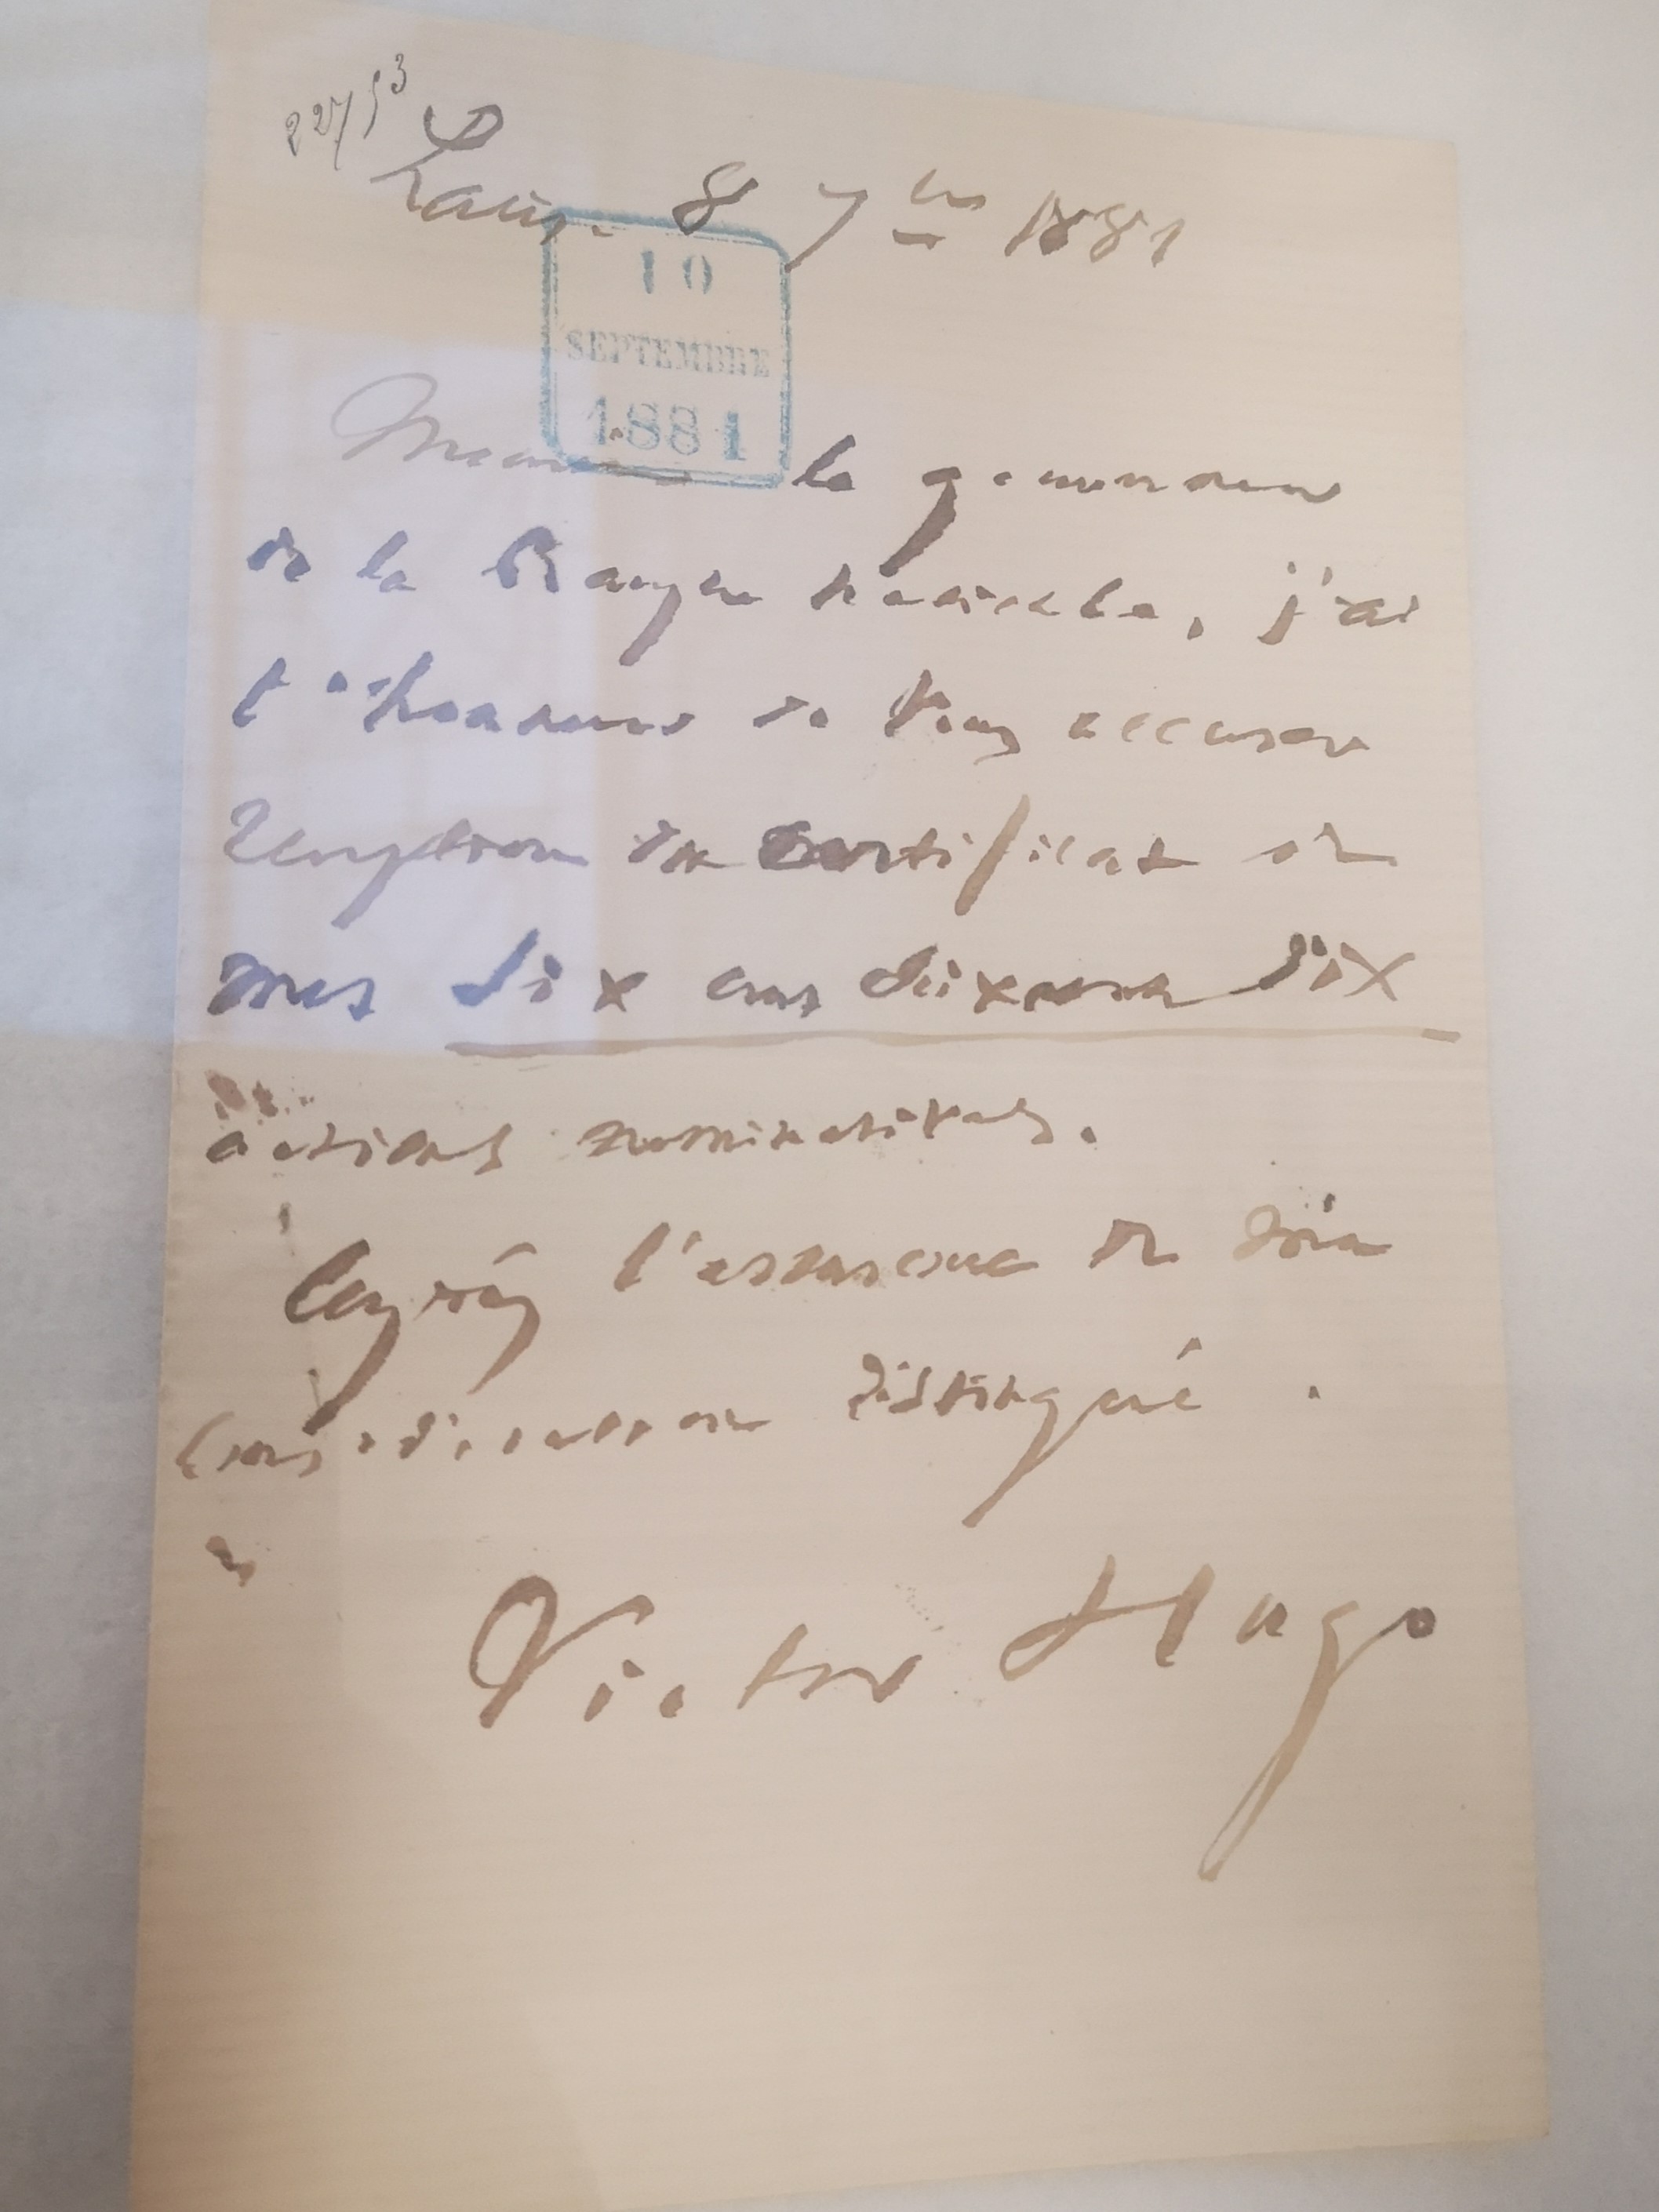 Paris. 8 7bre 1881
10
SEPTEMBRE
1881
le gouverneur
de la Banque nationale, j'ai
l'honneur de vous accuser
réception du certificat de
mes dix
actions nominatives.
l'assurance de ma
considération distinguée.
Victor Hugo